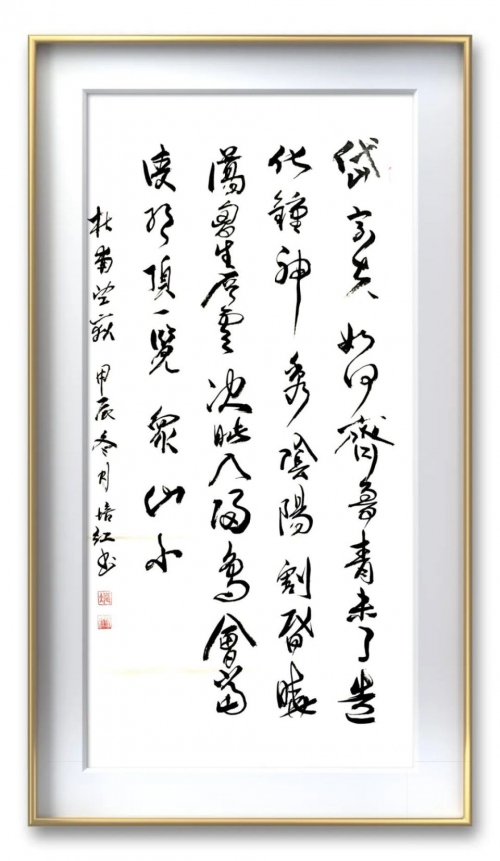 岱宗夫如何齊魯青未了造
化鍾神秀陰陽割昏曉
蕩胷生層雲決眥入歸鳥會當
凌絕頂一覽眾山小
杜甫望嶽 甲辰冬月培红书